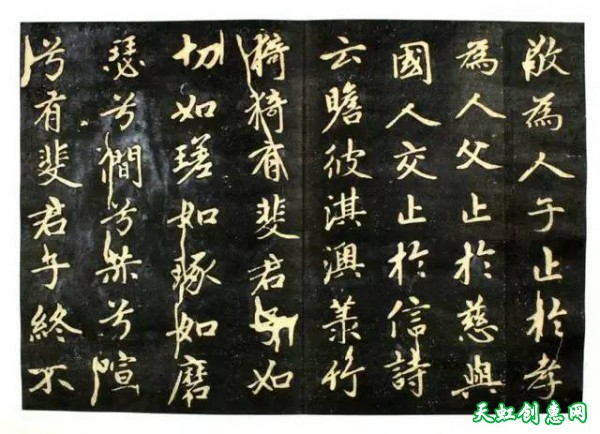 敬為人子止於孝
為人父止於慈與
國人交止於信詩
云瞻彼淇澳菉竹
猗猗有斐君子如
切如瑳如琢如磨
瑟兮僩兮赫兮喧
兮有斐君子終不
天虹创惠网